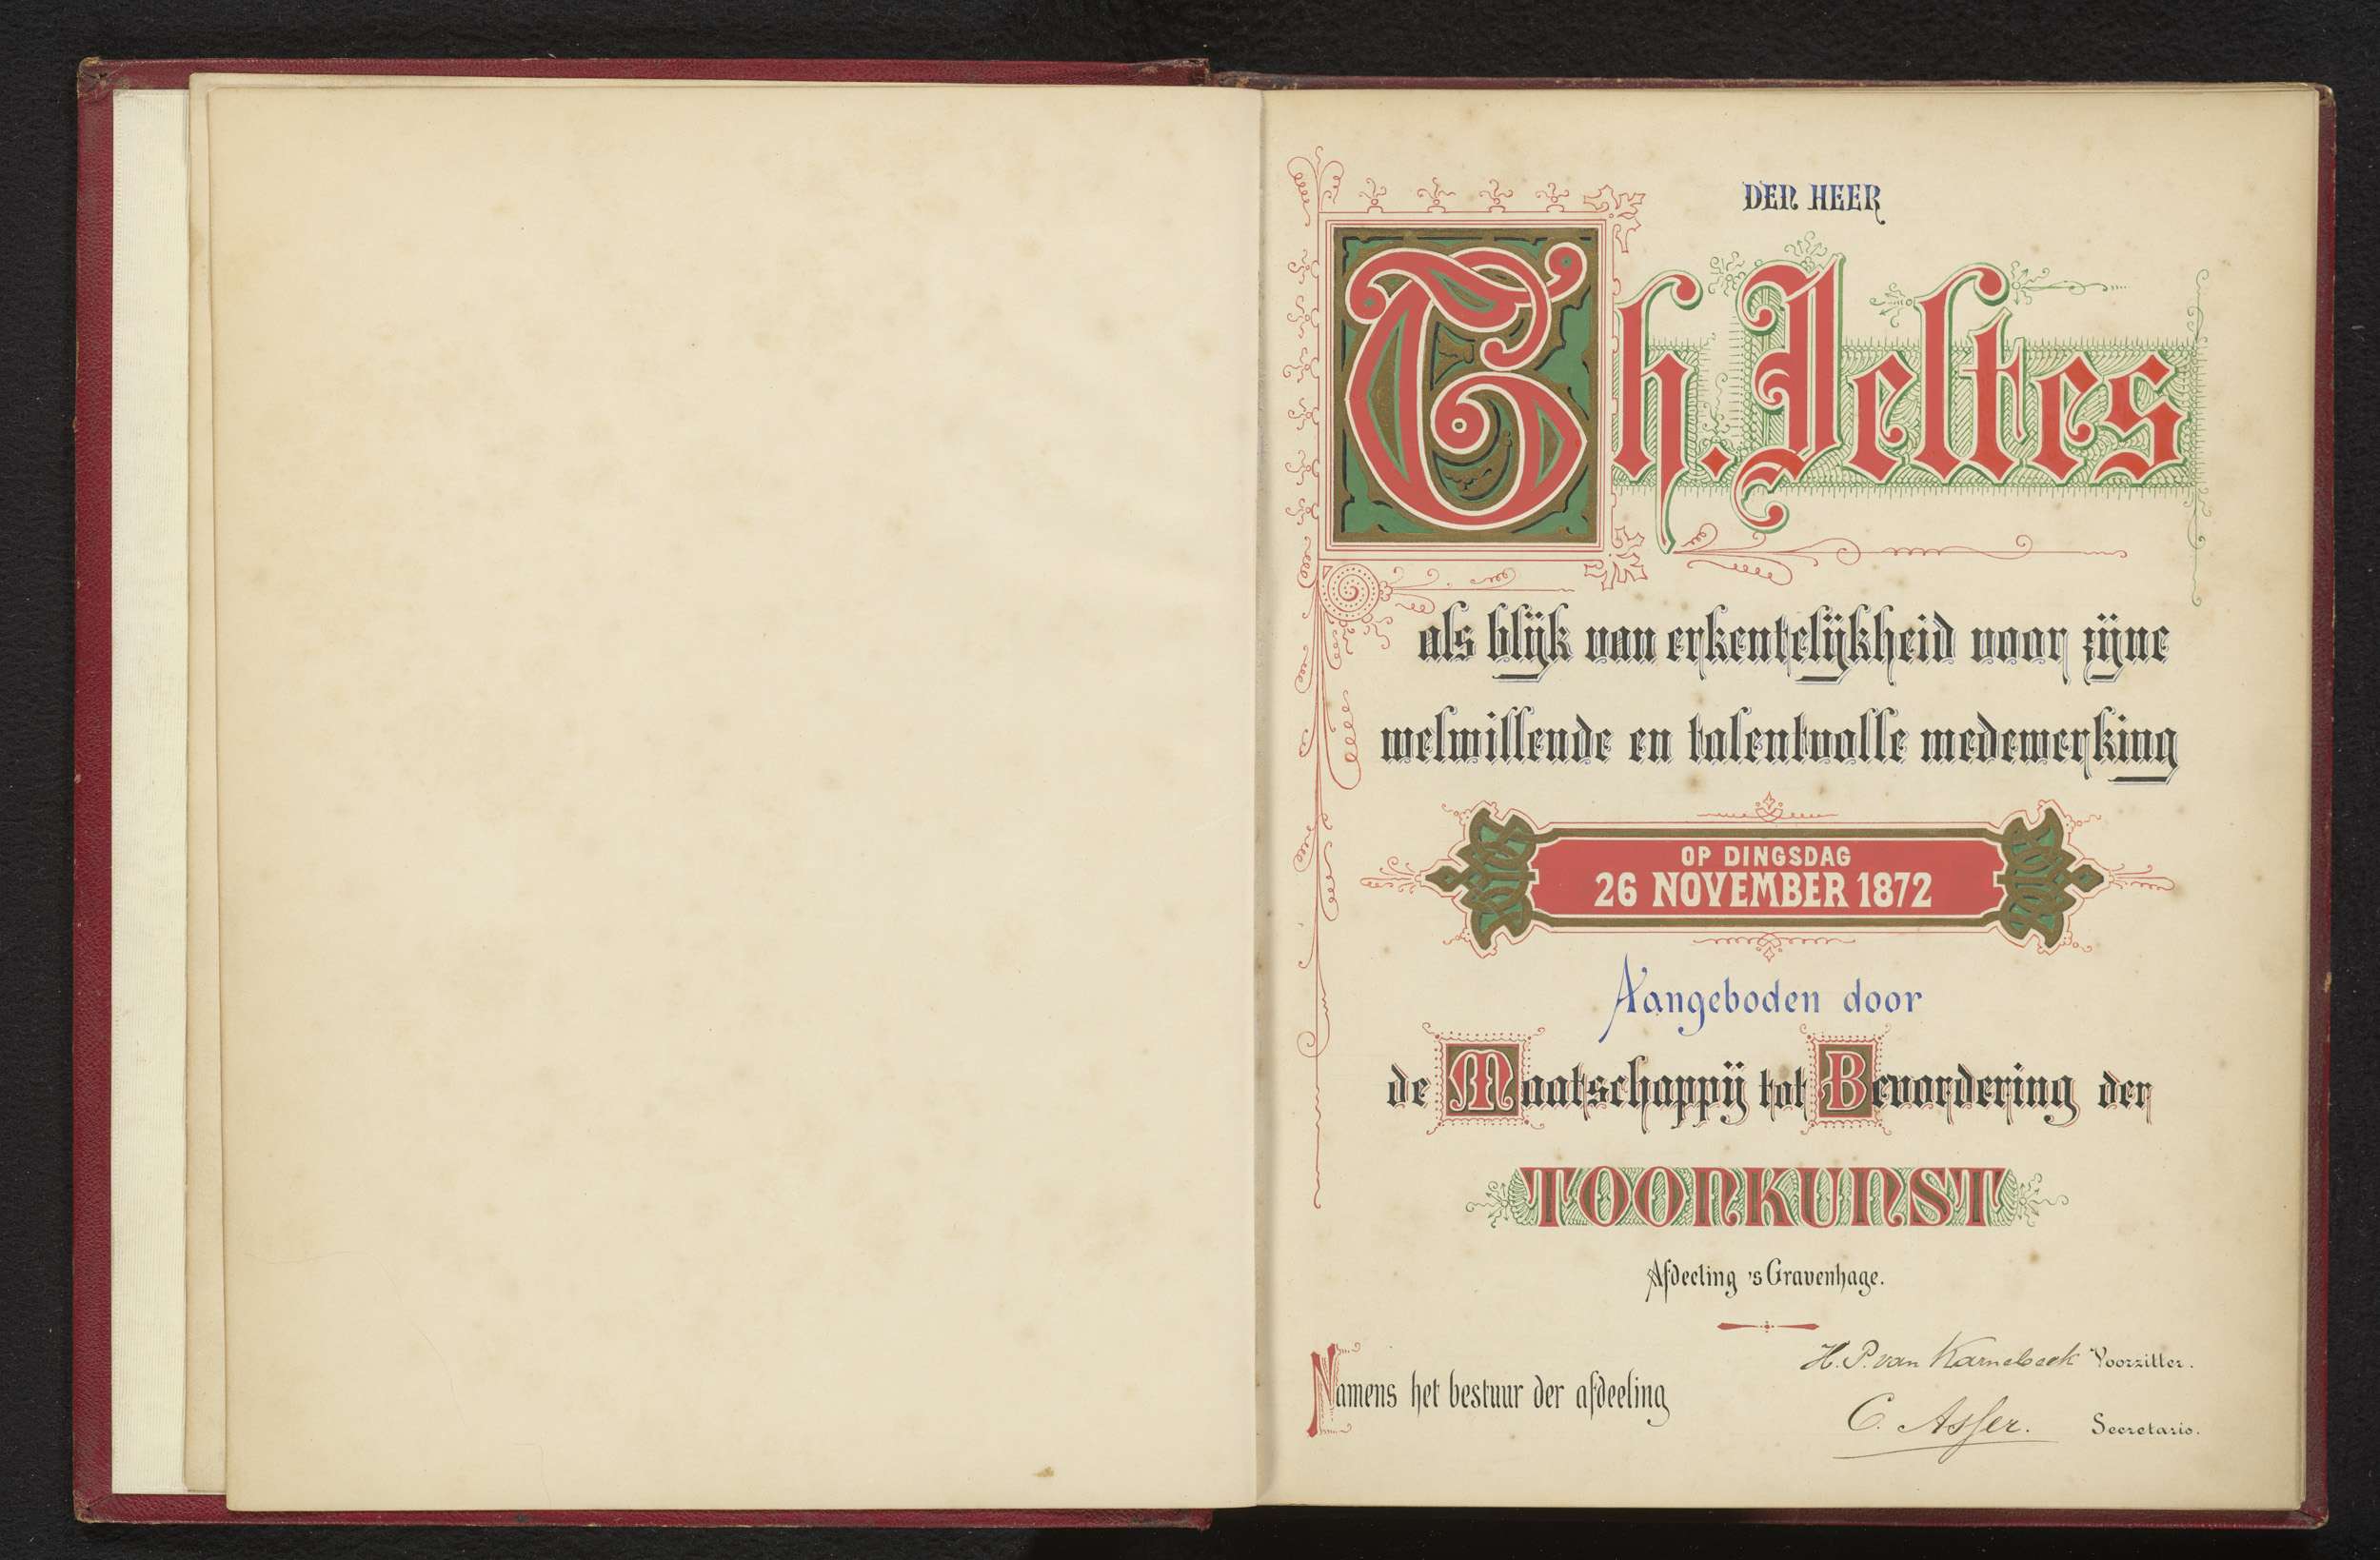 DEN HEER
Th. Jeltes
als blijk van erkentelijkheid voor zijne
welwillende en talentvolle medewerking
OP DINGSDAG
26 NOVEMBER 1872
Aangeboden door
de Maatschappij tot Bevordering der
TOONKUNST
Afdeeling 's Gravenhage.
H. P. van Karnebeek Voorzitter.
Namens het bestuur der afdeeling
C. Asser. Secretaris.